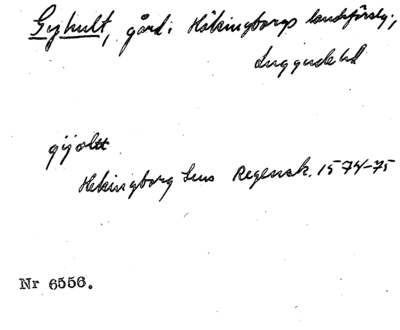 Gyhult, gård i Hälsingborgs landsförsg.,
Luggude hd
gijoltt
Helsingborg Lens Regensk. 1574-75
Nr 6556.